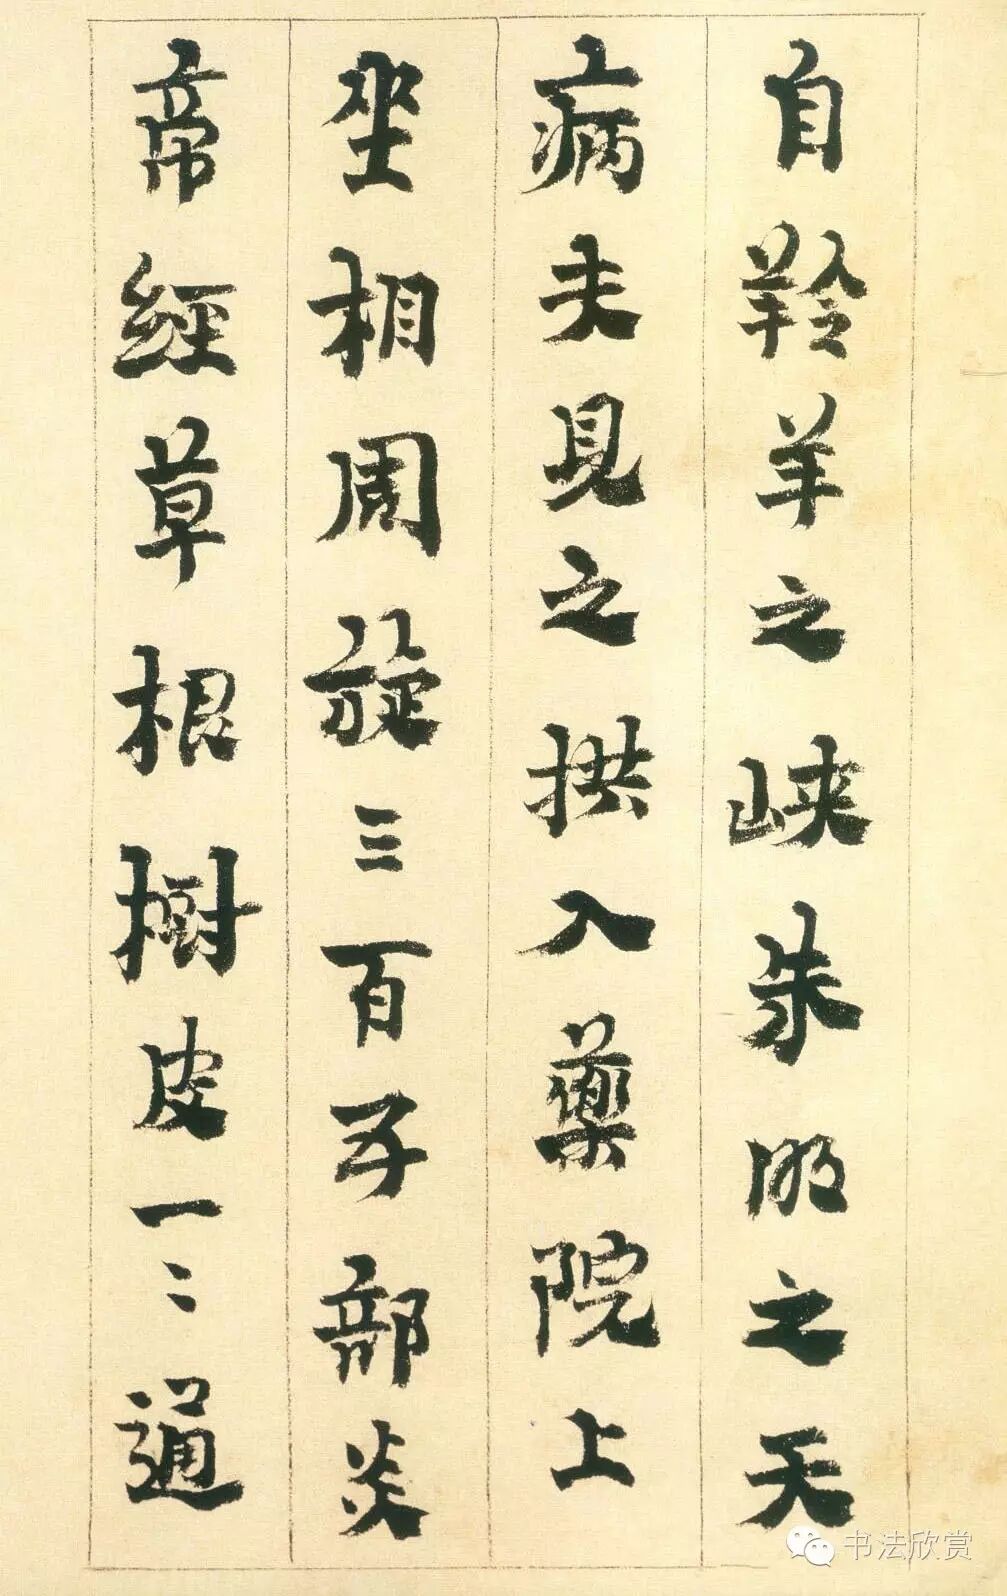 自羚羊之峡朱明之天
病夫見之拱入藥院上
坐相周旋三百年部炎
帝經草根樹皮一〻通
书法欣赏